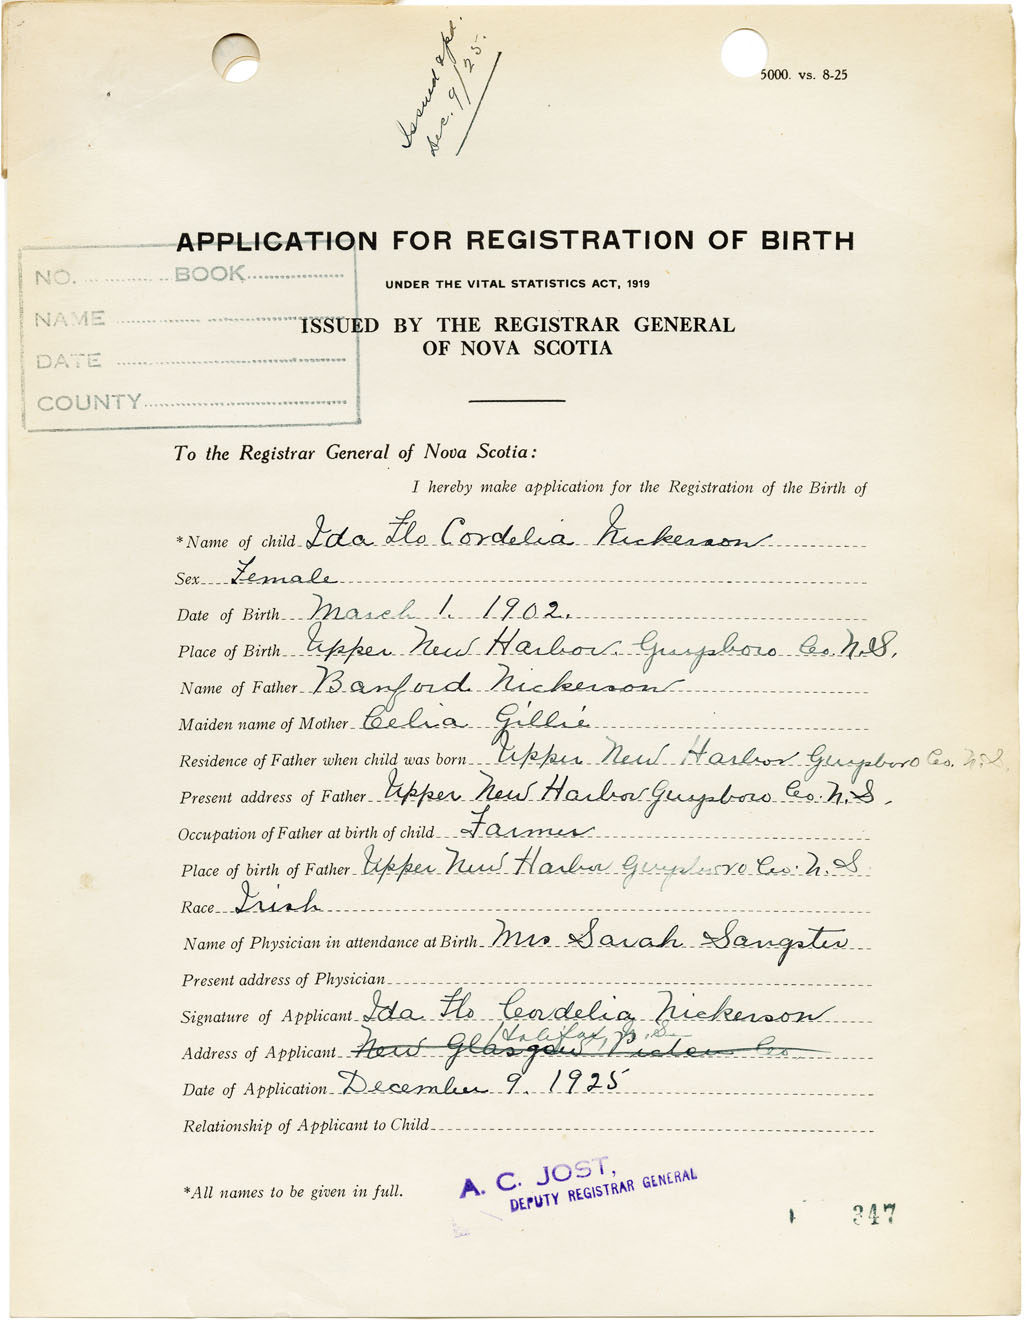 Issued apd.
Dec. 9/25.
5000. vs. 8-25
APPLICATION FOR REGISTRATION OF BIRTH
UNDER THE VITAL STATISTICS ACT, 1919
ISSUED BY THE REGISTRAR GENERAL
OF NOVA SCOTIA
NO. BOOK
NAME
DATE
COUNTY
To the Registrar General of Nova Scotia:
I hereby make application for the Registration of the Birth of
*Name of child Ida Flo Cordelia Nickerson
Sex Female
Date of Birth March 1. 1902.
Place of Birth Upper New Harbor. Guysboro Co. N.S.
Name of Father Banford Nickerson
Maiden name of Mother Celia Gillie
Residence of Father when child was born Upper New Harbor Guysboro Co. N.S.
Present address of Father Upper New Harbor Guysboro Co. N.S.
Occupation of Father at birth of child Farmer
Place of birth of Father Upper New Harbor Guysboro Co. N.S.
Race Irish
Name of Physician in attendance at Birth Mrs Sarah Sangster
Present address of Physician
Signature of Applicant Ida Flo Cordelia Nickerson
Halifax, N.S.
Address of Applicant New Glasgow Pictou Co.
Date of Application December 9. 1925
Relationship of Applicant to Child
*All names to be given in full.
A. C. JOST,
DEPUTY REGISTRAR GENERAL
347